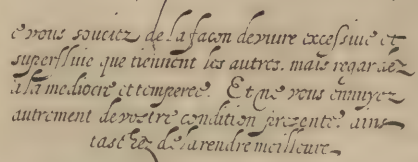 e vous souciez de la façon de vivre excessiue et
superfluie que tiennent les autres. mais regardez
a la mediocre et temperee. Et ne vous ennuyez
autrement de vostre condition presente. ains
taschez de la rendre meilleure